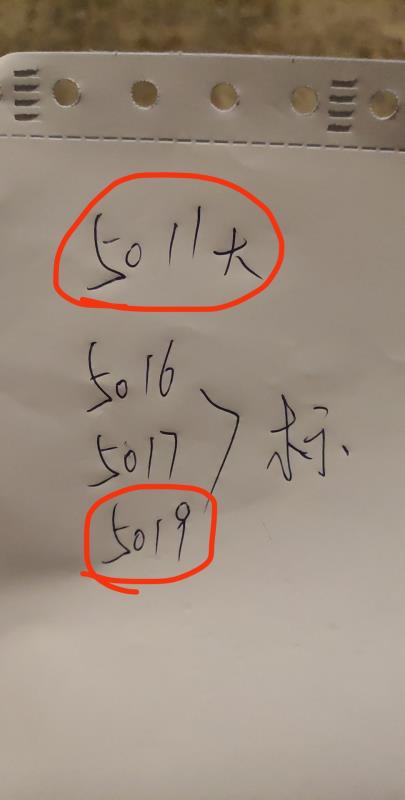 5011大
5016
5017
5019
标